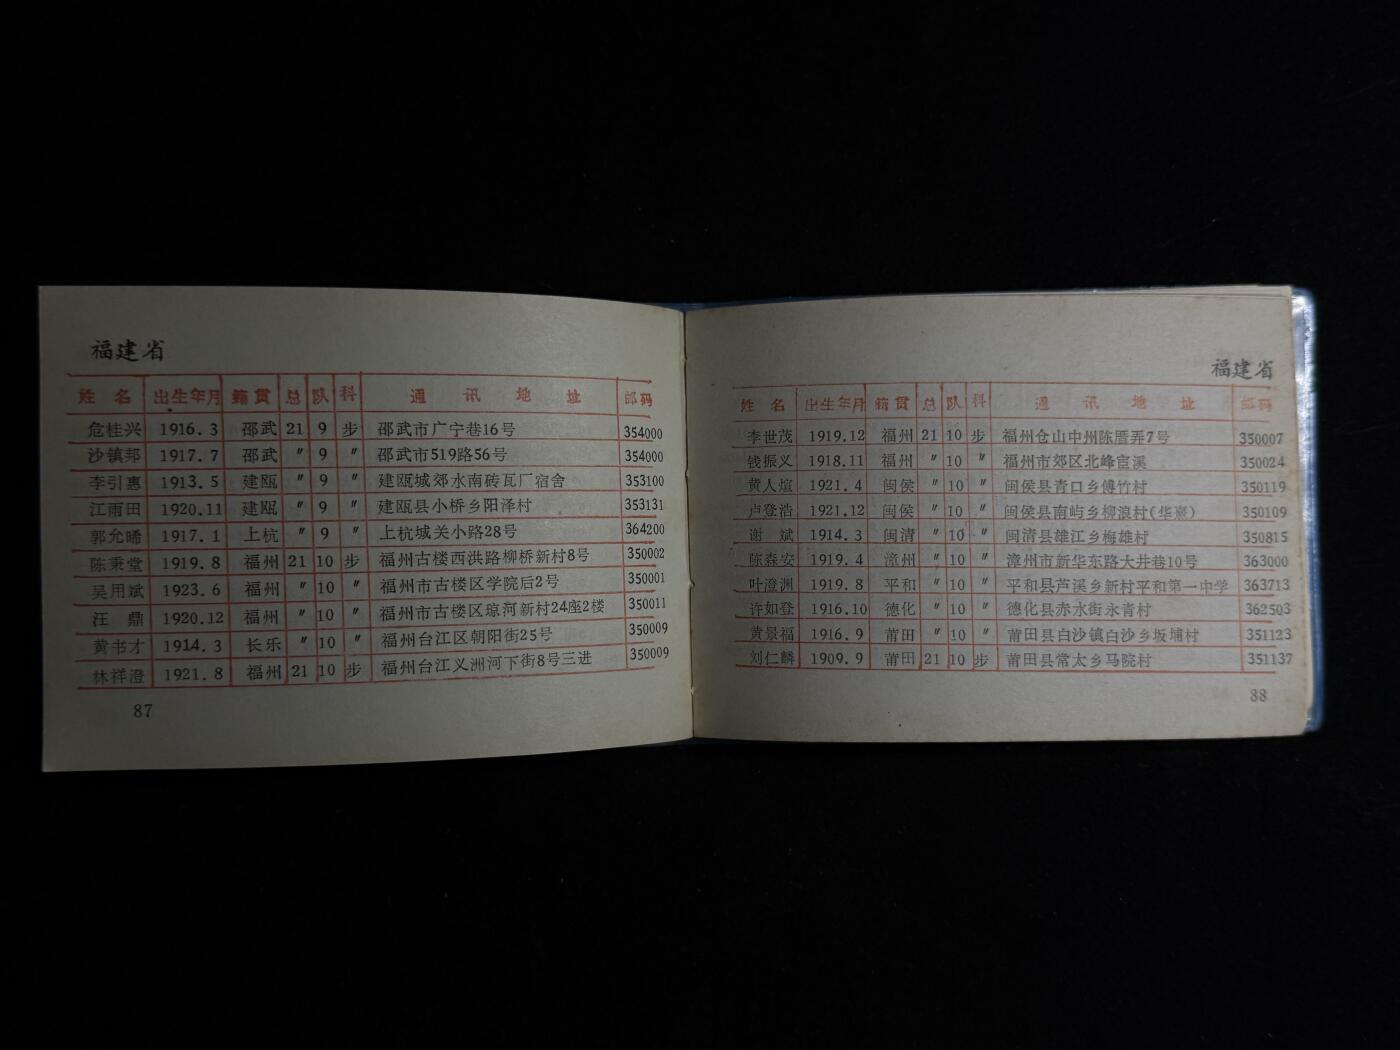 福建省
姓 名 出生年月 籍贯 总 队 科 通 讯 地 址 邮码
危桂兴 1916.3 邵武 21 9 步 邵武市广宁巷16号 354000
沙镇邦 1917.7 邵武 〃 9 〃 邵武市519路56号 354000
李引惠 1913.5 建瓯 〃 9 〃 建瓯城郊水南砖瓦厂宿舍 353100
江雨田 1920.11 建瓯 〃 9 〃 建瓯县小桥乡阳泽村 353131
郭允晞 1917.1 上杭 〃 9 〃 上杭城关小路28号 364200
陈秉堂 1919.8 福州 21 10 步 福州古楼西洪路柳桥新村8号 350002
吴用斌 1923.6 福州 〃 10 〃 福州市古楼区学院后2号 350001
汪 鼎 1920.12 福州 〃 10 〃 福州市古楼区琼河新村24座2楼 350011
黄书才 1914.3 长乐 〃 10 〃 福州台江区朝阳街25号 350009
林祥澄 1921.8 福州 21 10 步 福州台江义洲河下街8号三进 350009
87
福建省
姓 名 出生年月 籍贯 总 队 科 通 讯 地 址 邮码
李世茂 1919.12 福州 21 10 步 福州仓山中州陈厝弄7号 350007
钱振义 1918.11 福州 〃 10 〃 福州市郊区北峰宦溪 350024
黄人煊 1921.4 闽侯 〃 10 〃 闽侯县青口乡傅竹村 350119
卢登浩 1921.12 闽侯 〃 10 〃 闽侯县南屿乡柳浪村(华嵩) 350109
谢 斌 1914.3 闽清 〃 10 〃 闽清县雄江乡梅雄村 350815
陈森安 1919.4 漳州 〃 10 〃 漳州市新华东路大井巷10号 363000
叶澄洲 1919.8 平和 〃 10 〃 平和县芦溪乡新村平和第一中学 363713
许如登 1916.10 德化 〃 10 〃 德化县赤水街永青村 362503
黄景福 1916.9 莆田 〃 10 〃 莆田县白沙镇白沙乡坂埔村 351123
刘仁麟 1909.9 莆田 21 10 步 莆田县常太乡马院村 351137
88